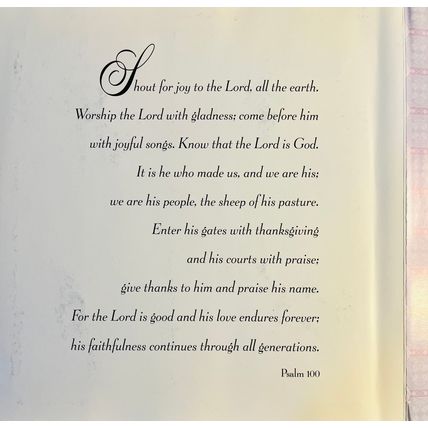 Shout for joy to the Lord, all the earth.
Worship the Lord with gladness; come before him
with joyful songs. Know that the Lord is God.
It is he who made us, and we are his;
we are his people, the sheep of his pasture.
Enter his gates with thanksgiving
and his courts with praise;
give thanks to him and praise his name.
For the Lord is good and his love endures forever;
his faithfulness continues through all generations.
Psalm 100